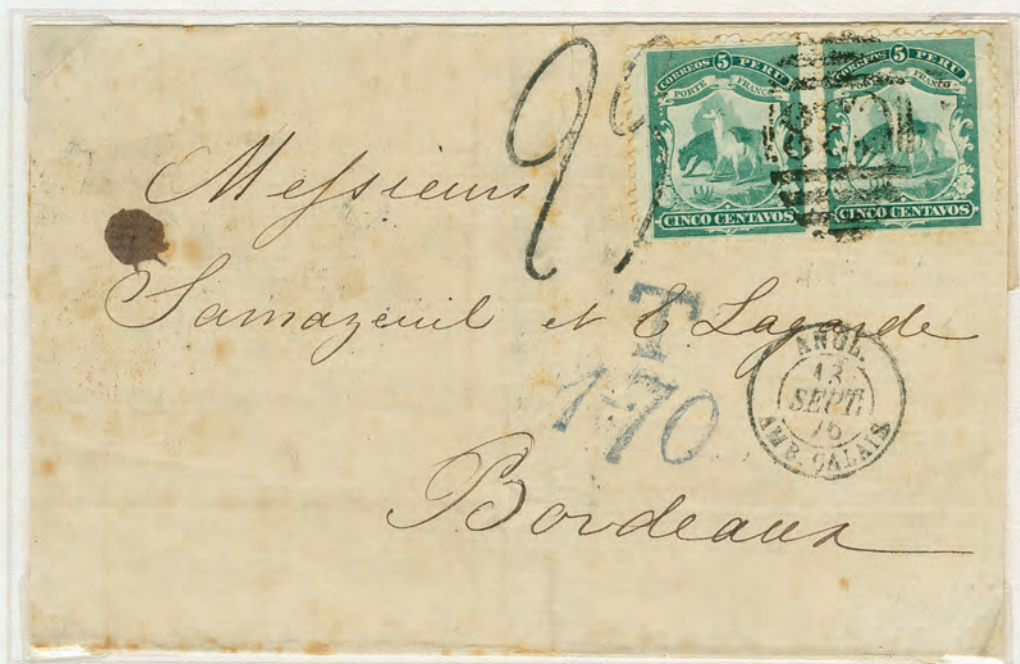 CORREOS 5 PERU
PORTE FRANCO
CINCO CENTAVOS
CORREOS 5 PERU
PORTE FRANCO
CINCO CENTAVOS
Messieurs
Samazeuil et E Lagarde
Bordeaux
T
1-70
ANGL.
13
SEPT.
76
AMB. CALAIS